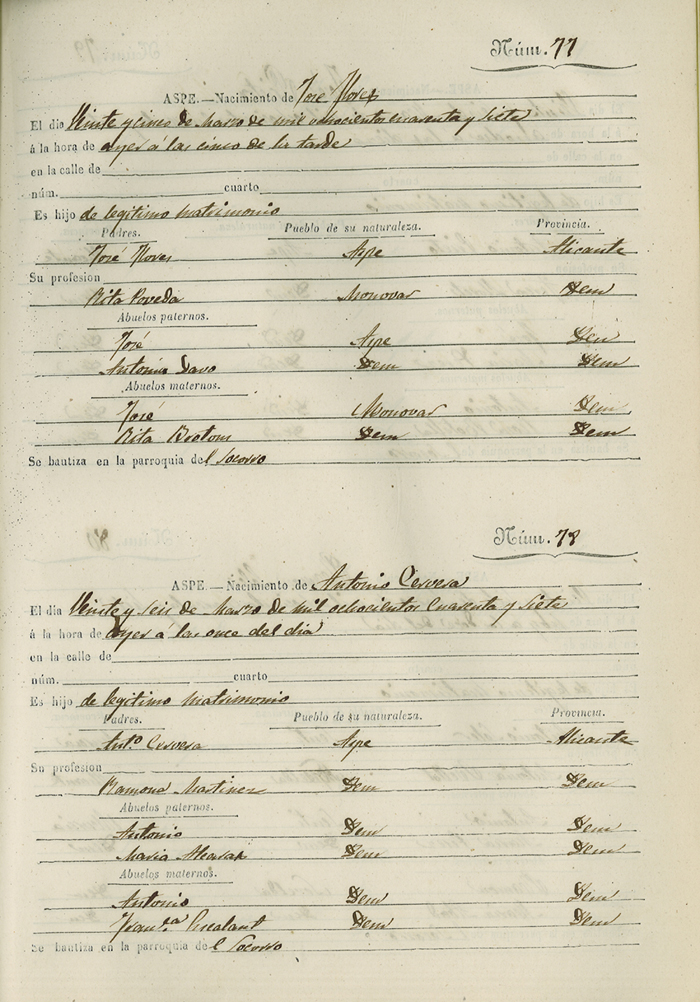 Núm. 77
ASPE.—Nacimiento de José Flores
El dia Veinte y cinco de Marzo de mil ochocientos cuarenta y siete
á la hora de ayer á las cinco de la tarde
en la calle de
núm. cuarto
Es hijo de legitimo matrimonio
Padres. Pueblo de su naturaleza. Provincia.
José Flores Aspe Alicante
Su profesion
Rita Poveda Monovar Ydem
Abuelos paternos.
José Aspe Ydem
Antonia Davo Ydem Ydem
Abuelos maternos.
José Monovar Ydem
Rita Brotons Ydem Ydem
Se bautiza en la parroquia del Socorro
Núm. 78
ASPE.—Nacimiento de Antonio Cervera
El dia Veinte y seis de Marzo de mil ochocientos cuarenta y siete
á la hora de ayer á las once del dia
en la calle de
núm. cuarto
Es hijo de legitimo matrimonio
Padres. Pueblo de su naturaleza. Provincia.
Antº Cervera Aspe Alicante
Su profesion
Ramona Martinez Ydem Ydem
Abuelos paternos.
Antonio Ydem Ydem
Maria Alcaraz Ydem Ydem
Abuelos maternos.
Antonio Ydem Ydem
Fran.ca Ydem Ydem
Se bautiza en la parroquia del Socorro